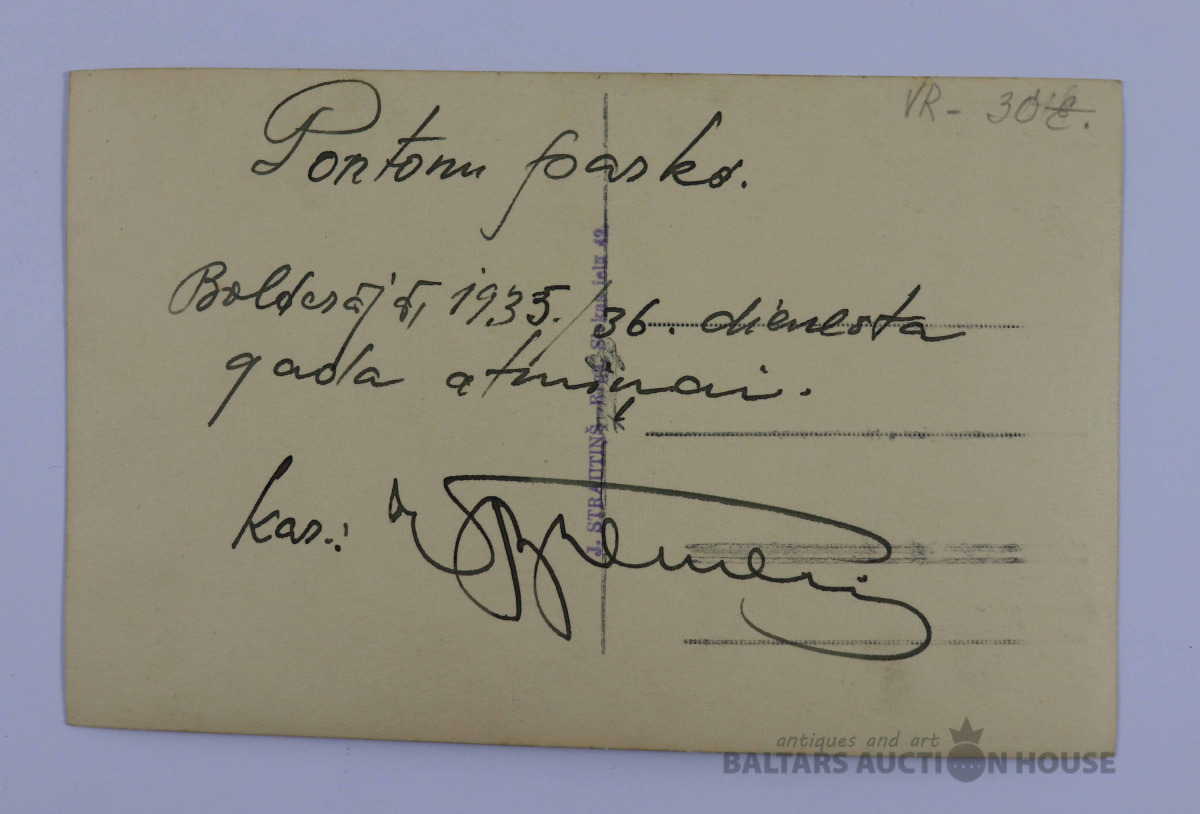 VR - 30
Pontonu parks.
Bolderājā, 1935./36. dienesta
gada atmiņai.
kar.:
J. STRAUTIŅŠ
iela 42.
antiques and art
BALTARS AUCTION HOUSE